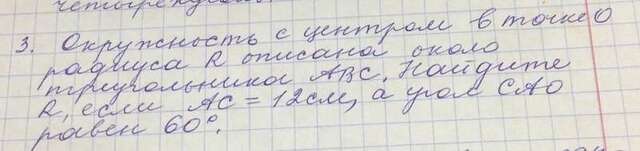 3. Окружность с центром в точке О
радиуса R описана около
треугольника ABC. Найдите
R, если AC = 12см, а угол CAO
равен 60°.